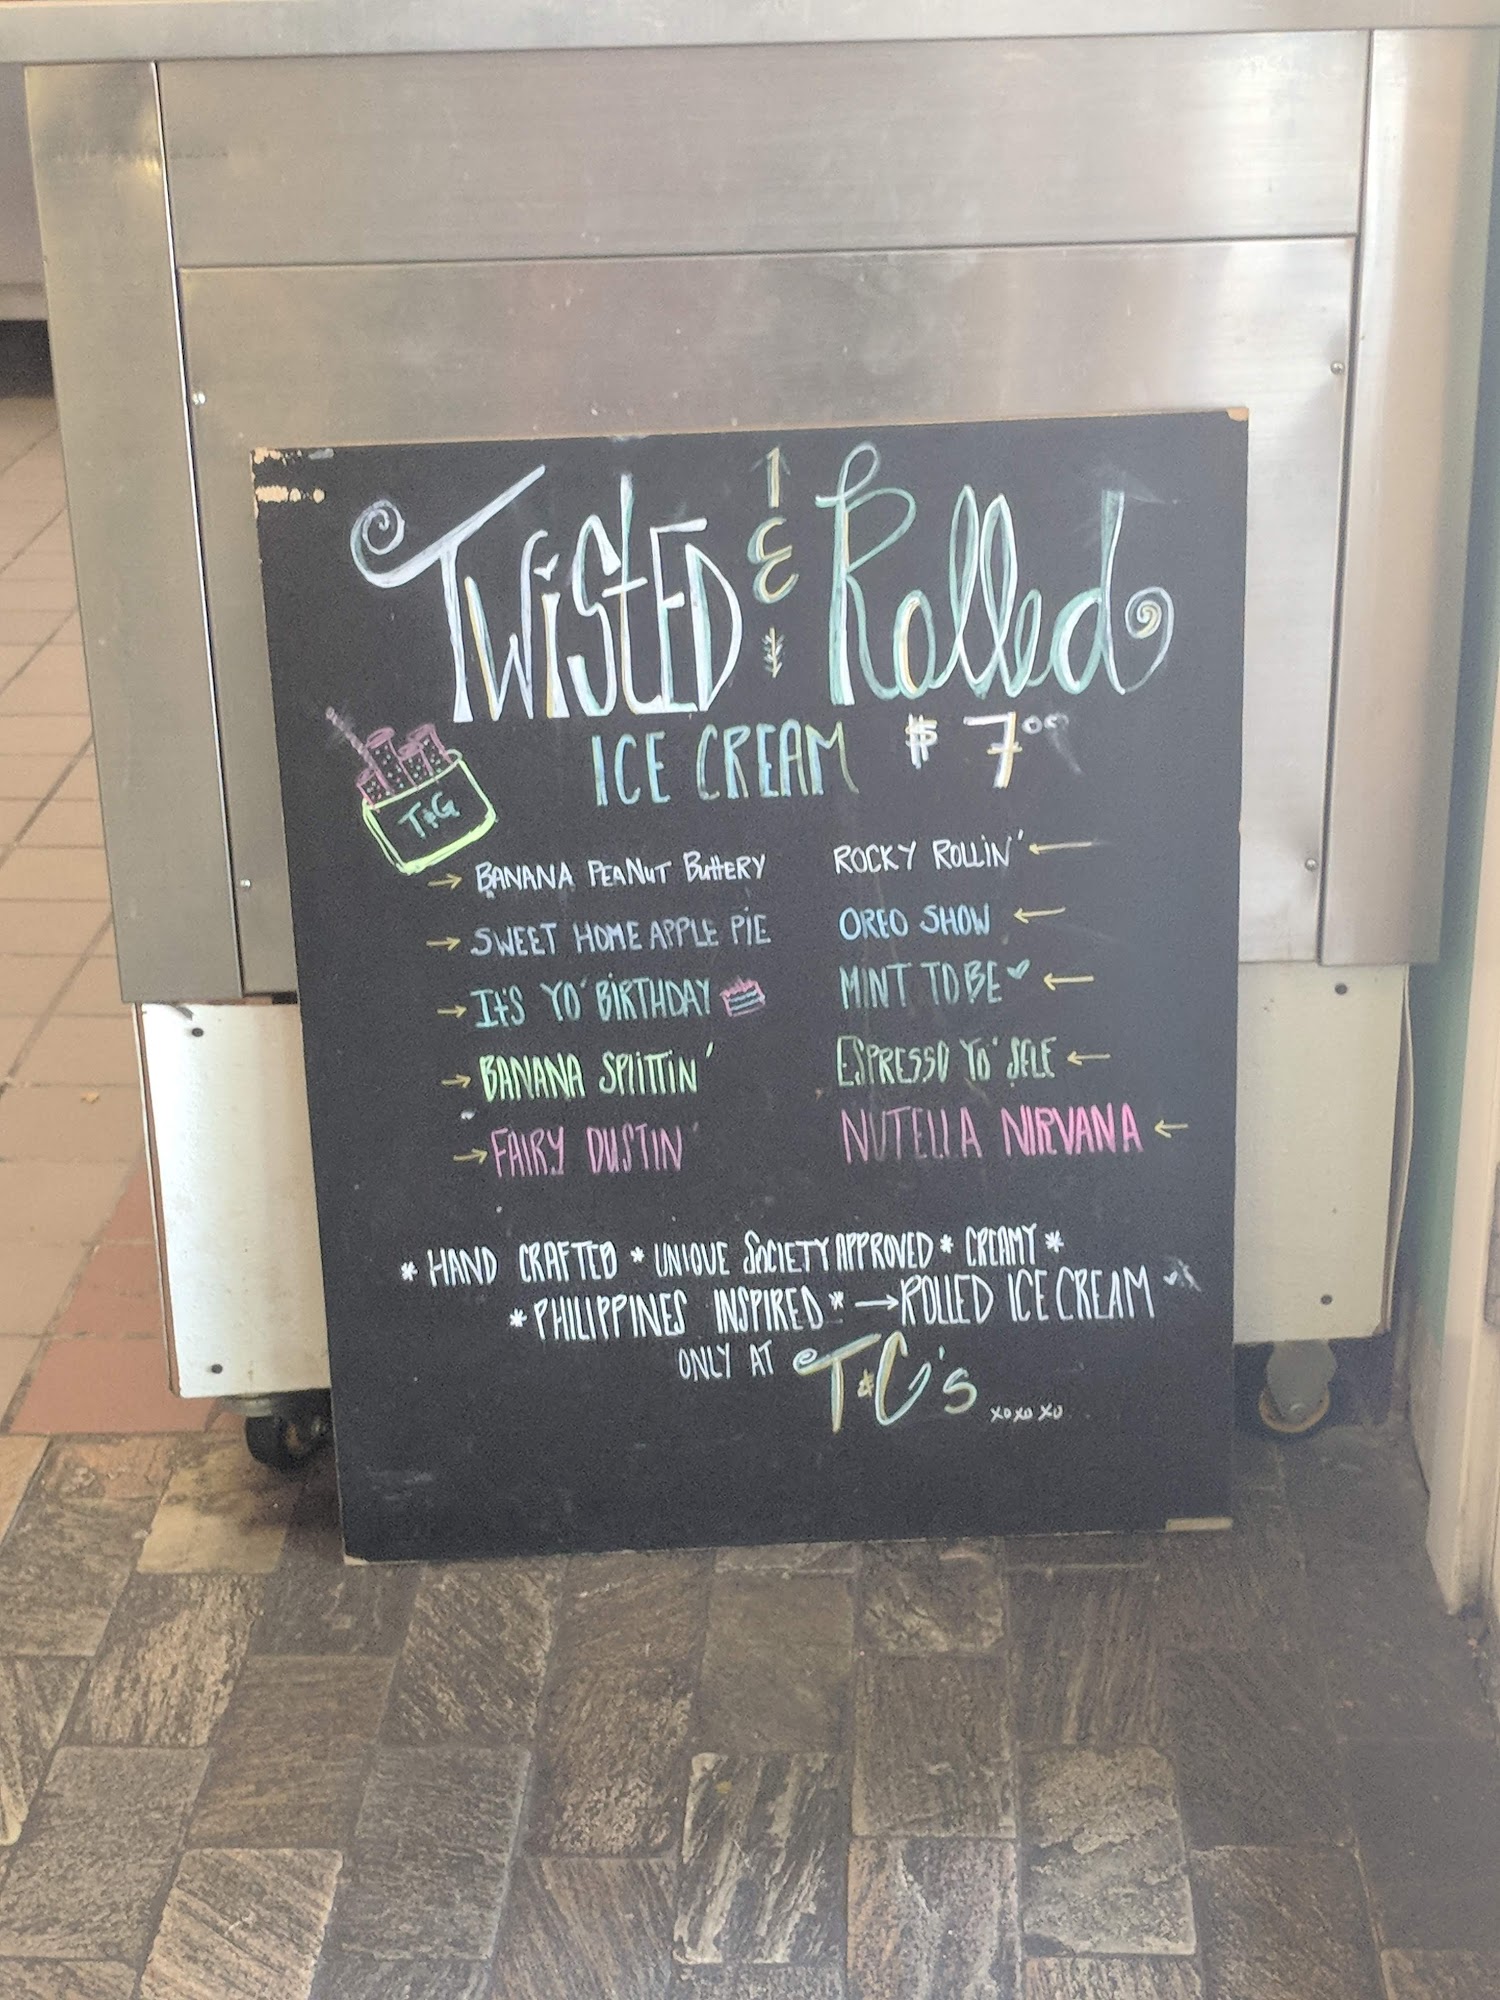 TWiStED & Rolled
ICE CREAM $7.00
T&G
→ BANANA PEANUT BuTTERY
→ SWEET HOME APPLE PiE
→ It'S YO' BIRTHDAY
→ BANANA SPlITTIN'
→ FAIRY DUSTIN'
ROCKY ROLLIN' ←
OREO SHOW ←
MINT TO BE ♥ ←
ESPRESSO YO' SELF ←
NUTELLA NIRVANA ←
* HAND CRAFTED * UNIQUE SOCIETY APPROVED * CREAMY *
* PHILIPPINES INSPIRED * → ROLLED ICE CREAM
ONLY AT T&G's xoxoxo